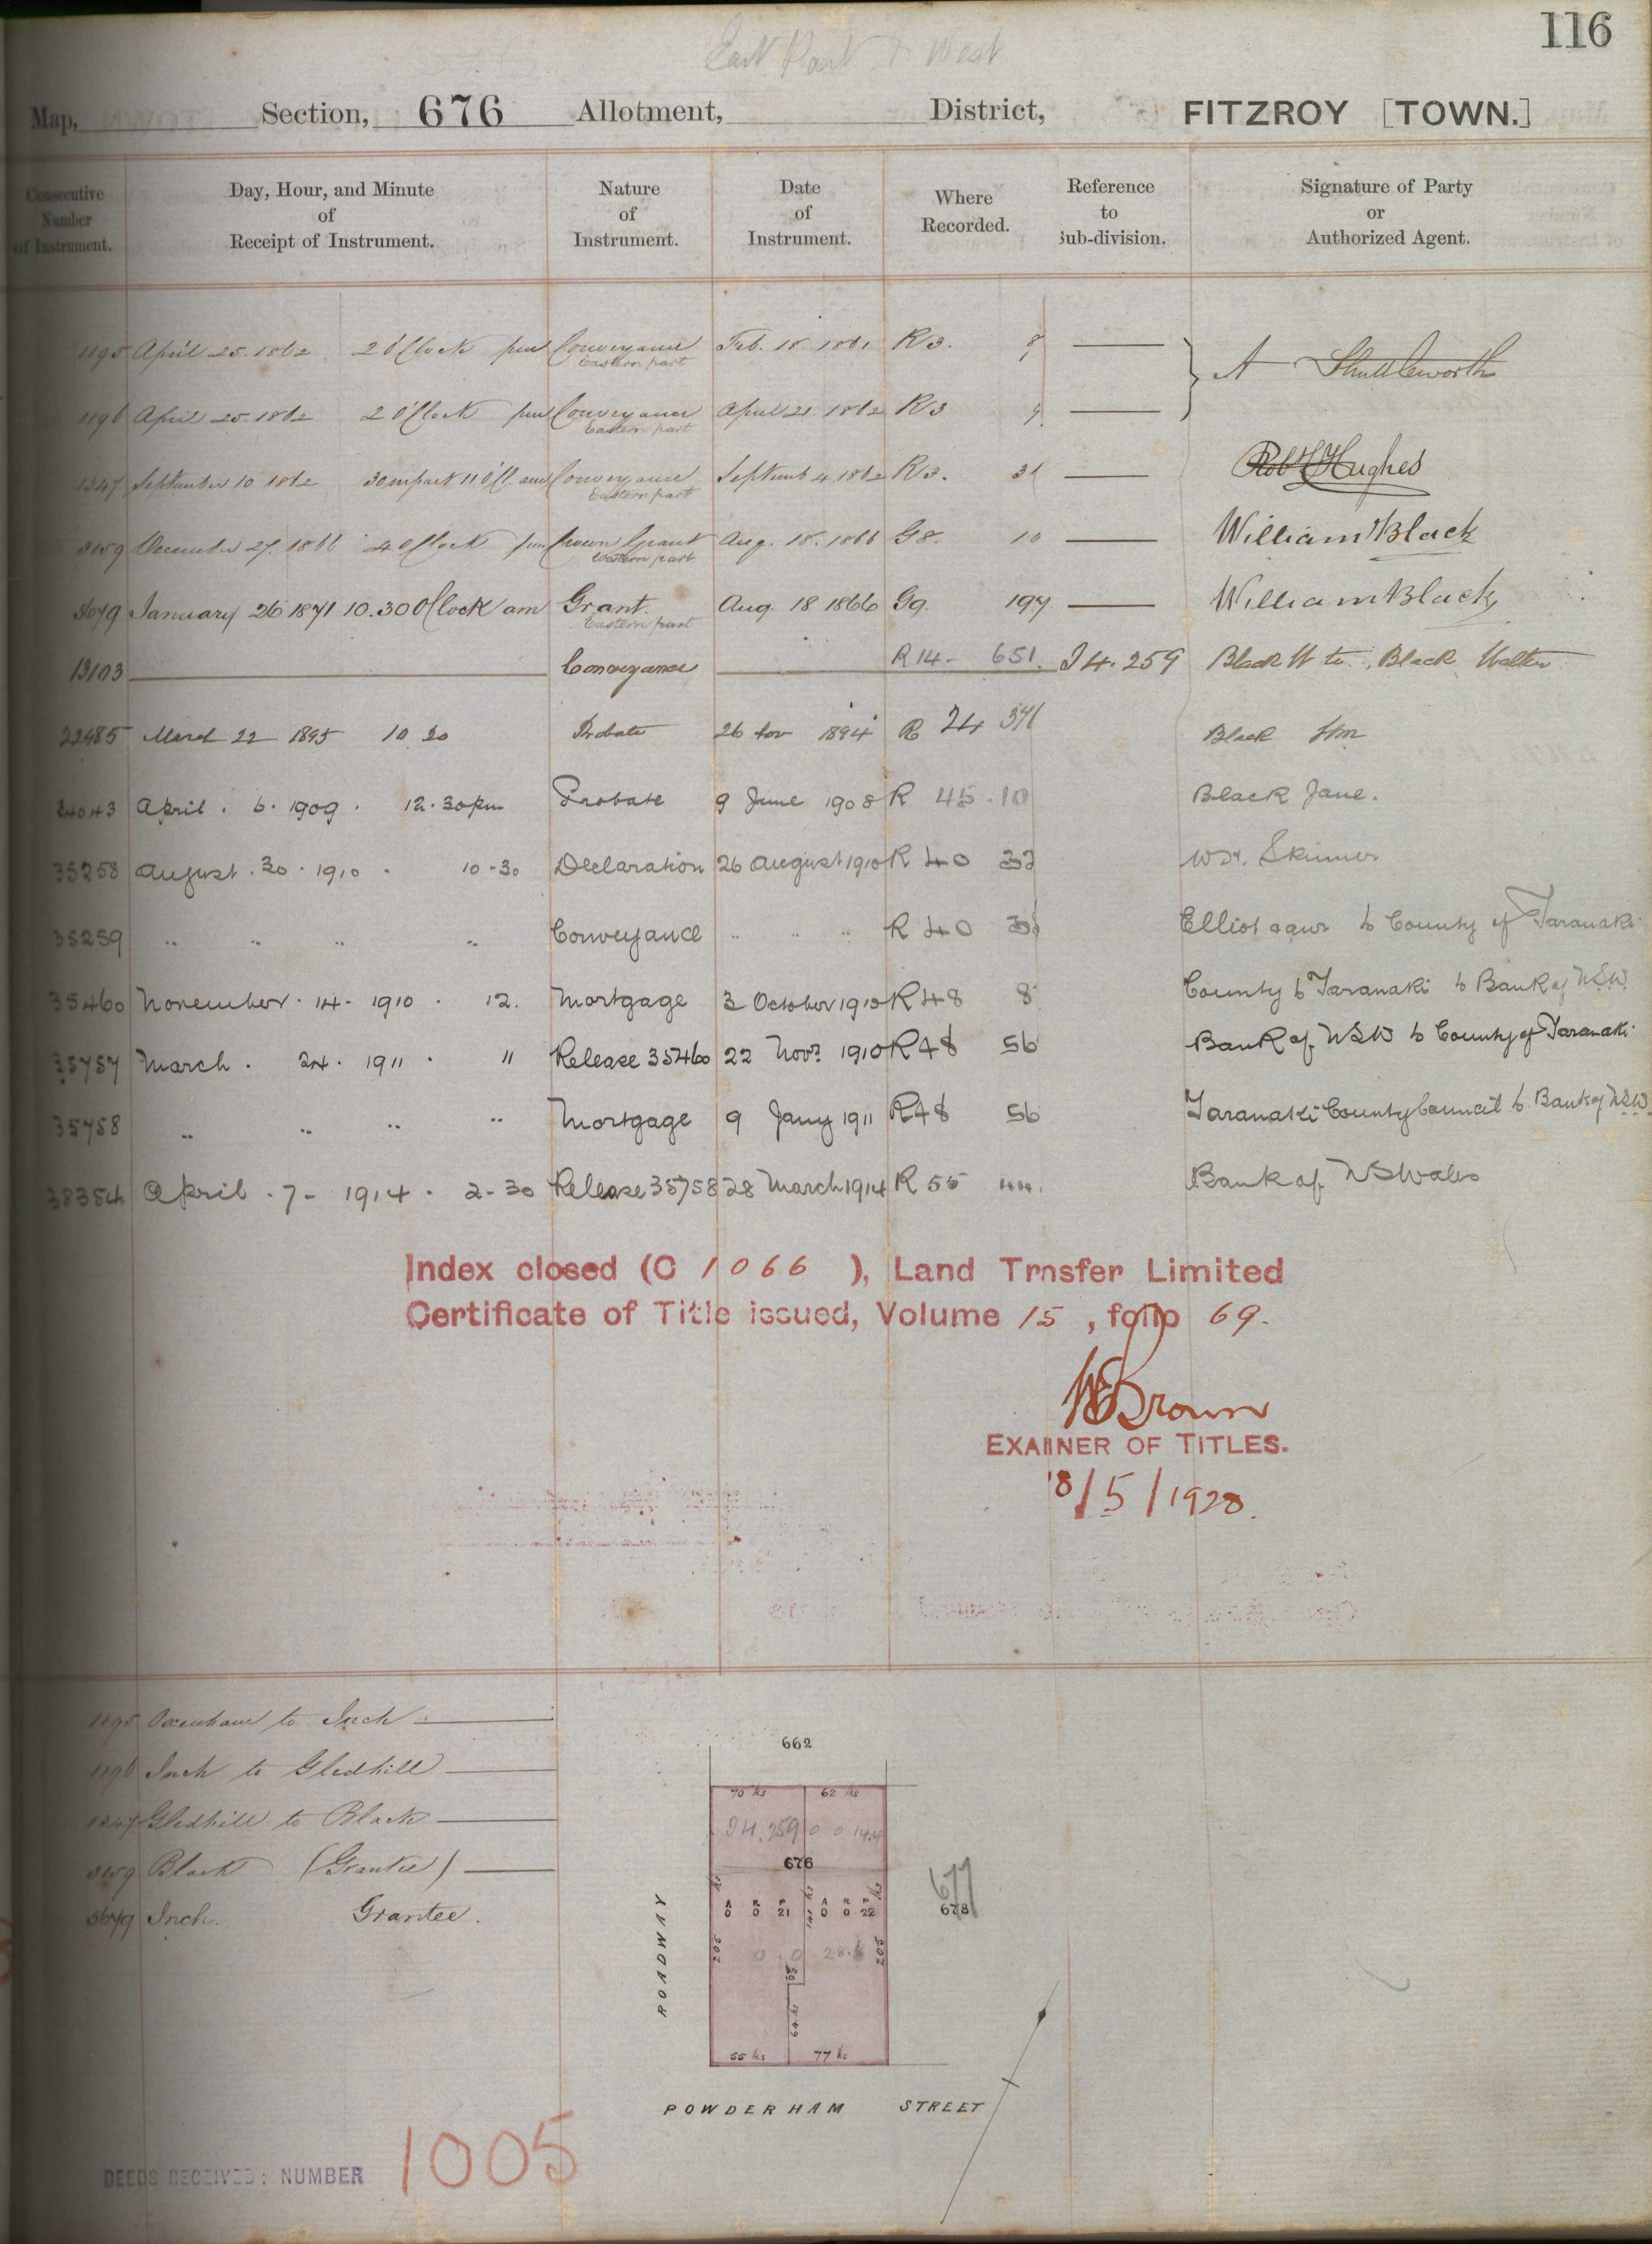 116
East Part & West
Map, Section, 676 Allotment, District, FITZROY [TOWN.]
Consecutive Number of Instrument. Day, Hour, and Minute of Receipt of Instrument. Nature of Instrument. Date of Instrument. Where Recorded. Reference to Sub-division. Signature of Party or Authorized Agent.
1195 April 25. 1862 2 O'Clock pm Conveyance Feb. 18. 1861 R3. 8 A Shuttleworth
Eastern part
1196 April 25. 1862 2 O'Clock pm Conveyance April 21. 1862 R3 9
Eastern part
1347 September 10 1862 30 m past 11 O'Cl am Conveyance Septemb 4 1862 R3. 31 Hughes
Eastern part
3159 December 27. 1866 4 O'Clock pm Crown Grant Aug. 18. 1866 G8. 10 William Black
Western part
5679 January 26 1871 10.30 O'Clock am Grant. Aug. 18 1866 G9. 197 William Black
Eastern part
13103 Conveyance R14 - 651. I4. 259 Black W to Black Walter
22485 March 22 1895 10 20 Probate 26 Nov 1894 R 24 371 Black Wm
34043 April . 6. 1909 . 12.30 pm Probate 9 June 1908 R 45. 10 Black Jane.
35258 August. 30. 1910 . 10-30 Declaration 26 August 1910 R 40 W. H. Skinner
35259 " " " " Conveyance " " " R 40 Elliot & anr to County of Taranaki
35460 November. 14. 1910 . 12. Mortgage 3 October 1910 R48 8 County of Taranaki to Bank of N.S.W.
35757 March . 24. 1911 . 11 Release 35460 22 Novr. 1910 R48 56 Bank of NSW to County of Taranaki
35758 " " " " Mortgage 9 Jany 1911 R48 56 Taranaki County Council to Bank of N.S.W.
38354 April . 7 - 1914 . 2-30 Release 35758 28 March 1914 R 55 44. Bank of NSWales
Index closed (C 1066 ), Land Trnsfer Limited
Certificate of Title issued, Volume 15 , folio 69.
Brown
EXAMINER OF TITLES.
18/5/1928.
1195 Oxenham to Inch
1196 Inch to Gledhill
1347 Gledhill to Black
3159 Black (Grantee)
5679 Inch. Grantee.
662
70 lks 62 lks
I4. 259 0 0 14.4
676
A R P A R P
0 0 21 0 0 22
677
678
205 141 lks 205
0. 0. 28.6
64 lks
55 lks 77 lks
ROADWAY
POWDERHAM STREET
DEEDS RECEIVED: NUMBER 1005